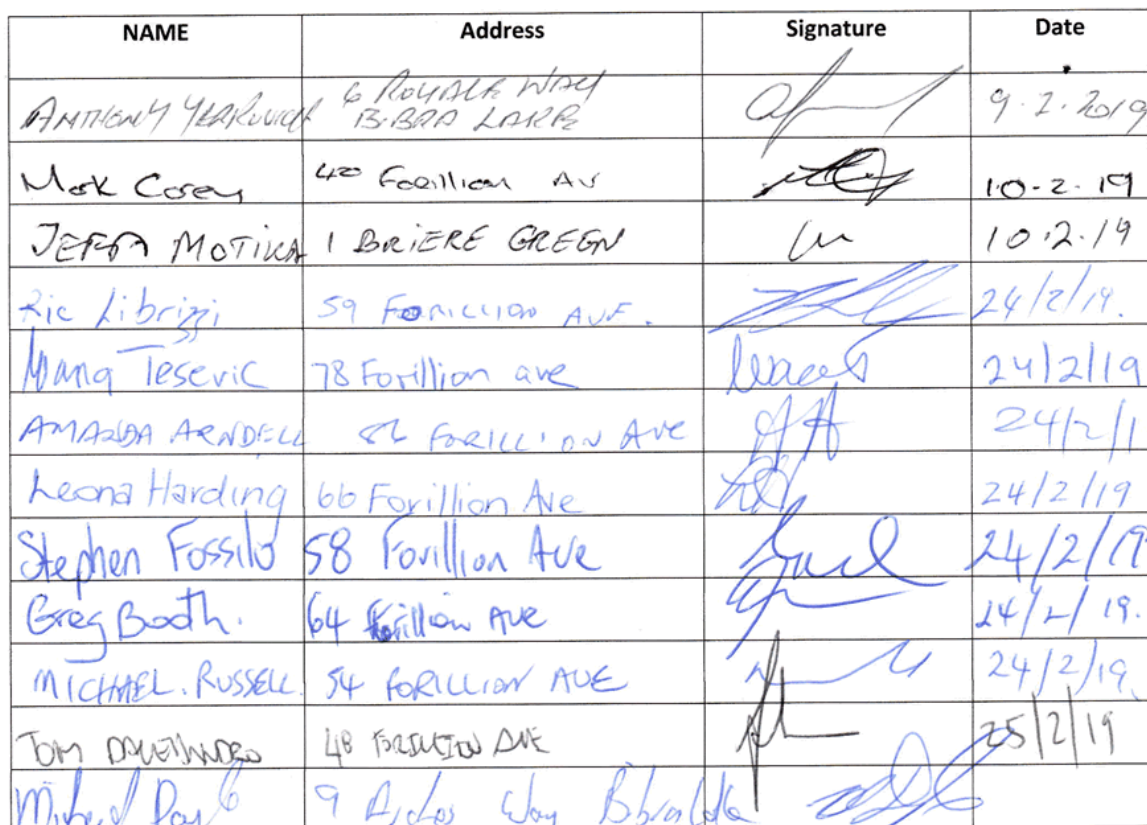 NAME Address Signature Date
ANTHONY YERKOVICH 6 ROYALE WAY BIBRA LAKE 9.2.2019
Mark Corey 42 Forillion Av 10-2-19
MOTIKA 1 BRIERE GREEN 10.2.19
Ric Librizzi 59 FORILLION AVE. 24/2/19.
Tesevic 78 Forillion ave 24/2/19
AMANDA ARNDELL FORILLION AVE 24/2/1
Leona Harding 66 Forillion Ave 24/2/19
Stephen 58 Forillion Ave 24/2/19
Greg Booth. 64 Forillion Ave 24/2/19.
MICHAEL. RUSSELL. 54 FORILLION AVE 24/2/19
TOM 48 FORILLION AVE 25/2/19
Michael 9 Way Bibra Lake